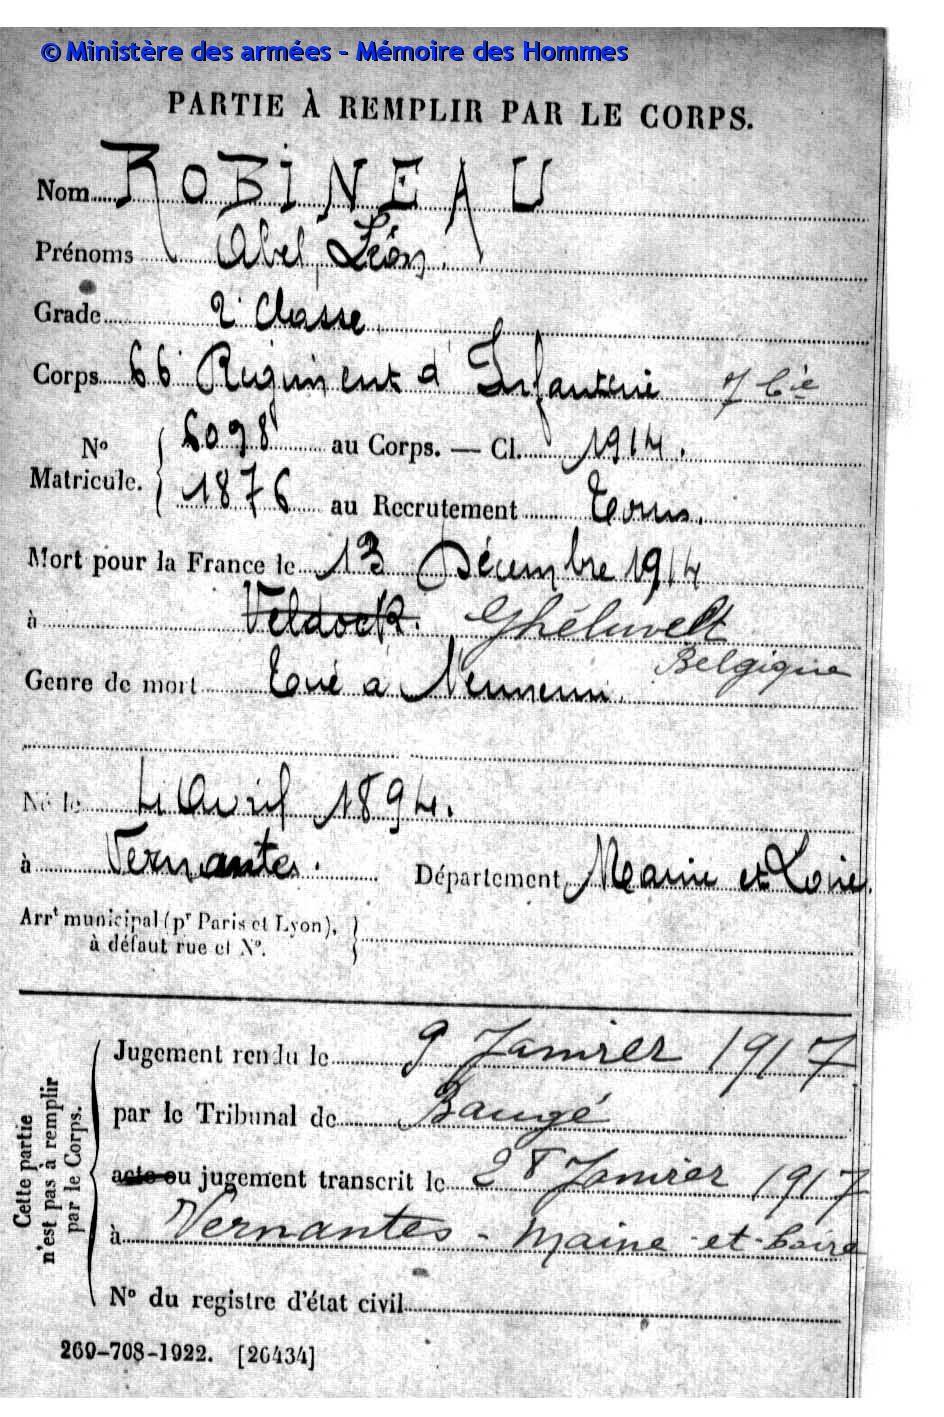 © Ministère des armées - Mémoire des Hommes
PARTIE À REMPLIR PAR LE CORPS.
Nom ROBINEAU
Prénoms Abel Léon.
Grade 2e Classe
Corps 66 Régiment d'Infanterie 7 Cie
N° Matricule. { 6098 au Corps. — Cl. 1914.
1876 au Recrutement Tours.
Mort pour la France le 13 Décembre 1914
à Veldoek. Ghéluvelt
Belgique
Genre de mort Tué à l'ennemi.
Né le 4 Avril 1894.
à Vernantes. Département Maine et Loire.
Arrt municipal (pr Paris et Lyon),
à défaut rue et N°.
Cette partie n'est pas à remplir par le Corps.
Jugement rendu le 9 Janvier 1917
par le Tribunal de Baugé
acte ou jugement transcrit le 28 Janvier 1917
à Vernantes - Maine-et-Loire
N° du registre d'état civil
269-708-1922. [26434]